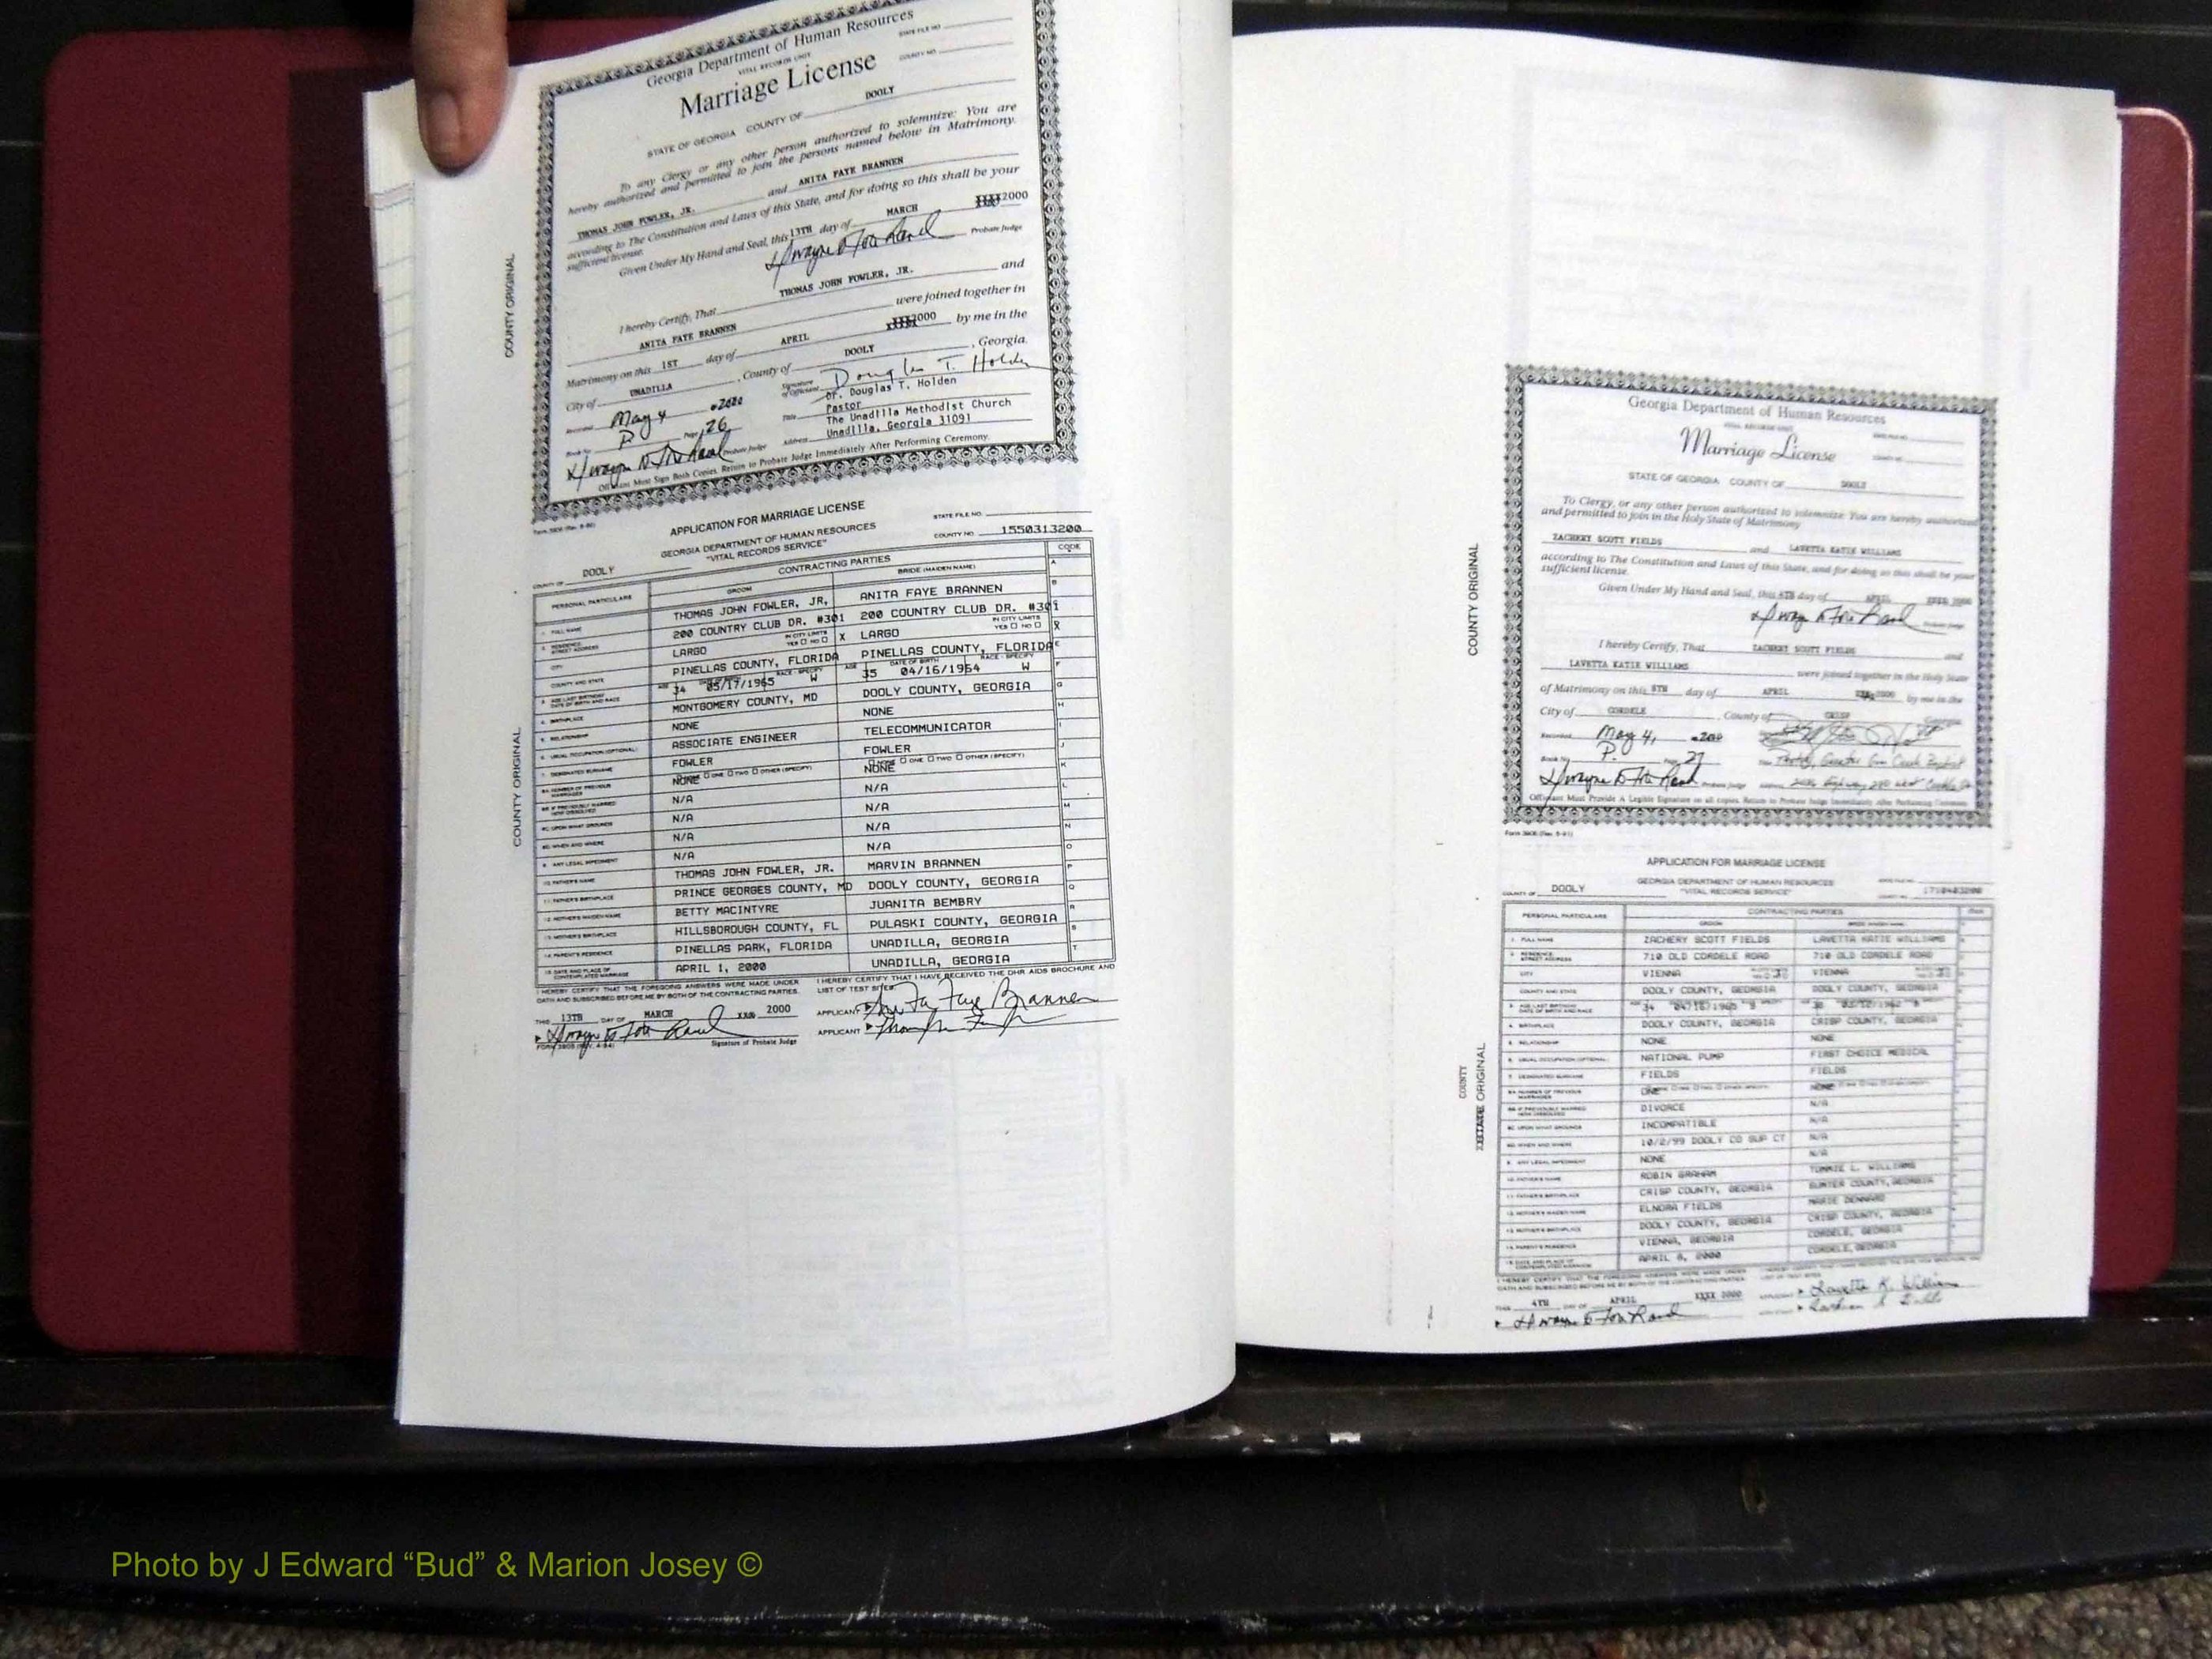 Georgia Department of Human Resources
VITAL RECORDS UNIT
STATE FILE NO.
Marriage License
COUNTY NO.
STATE OF GEORGIA COUNTY OF DOOLY
To any Clergy or any other person authorized to solemnize: You are
hereby authorized and permitted to join the persons named below in Matrimony.
THOMAS JOHN FOWLER, JR. and ANITA FAYE BRANNEN
according to The Constitution and Laws of this State, and for doing so this shall be your
sufficient license.
Given Under My Hand and Seal, this 13TH day of MARCH 2000
Probate Judge
I hereby Certify, That THOMAS JOHN FOWLER, JR. and
ANITA FAYE BRANNEN were joined together in
Matrimony on this 1ST day of APRIL 2000 by me in the
City of UNADILLA, County of DOOLY, Georgia.
Recorded May 4 2000
Signature of Officiant Douglas T. Holden
Dr. Douglas T. Holden
Book No. P Page 26
Title Pastor
The Unadilla Methodist Church
Probate Judge
Address Unadilla, Georgia 31091
Officiant Must Sign Both Copies. Return to Probate Judge Immediately After Performing Ceremony.
COUNTY ORIGINAL
APPLICATION FOR MARRIAGE LICENSE
GEORGIA DEPARTMENT OF HUMAN RESOURCES
"VITAL RECORDS SERVICE"
STATE FILE NO.
COUNTY NO. 1550313200
COUNTY OF DOOLY
COUNTY ORIGINAL
PERSONAL PARTICULARS
CONTRACTING PARTIES
CODE
GROOM BRIDE (MAIDEN NAME)
1. FULL NAME THOMAS JOHN FOWLER, JR. ANITA FAYE BRANNEN
2. RESIDENCE STREET ADDRESS 200 COUNTRY CLUB DR. #301 200 COUNTRY CLUB DR. #301
CITY LARGO IN CITY LIMITS YES NO X LARGO IN CITY LIMITS YES NO X
COUNTY AND STATE PINELLAS COUNTY, FLORIDA PINELLAS COUNTY, FLORIDA
3. AGE LAST BIRTHDAY DATE OF BIRTH AND RACE 34 05/17/1965 W 35 04/16/1964 W
4. BIRTHPLACE MONTGOMERY COUNTY, MD DOOLY COUNTY, GEORGIA
5. RELATIONSHIP NONE NONE
6. USUAL OCCUPATION (OPTIONAL) ASSOCIATE ENGINEER TELECOMMUNICATOR
7. DESIGNATED SURNAME FOWLER FOWLER
8A. NUMBER OF PREVIOUS MARRIAGES NONE ONE TWO OTHER (SPECIFY) NONE ONE TWO OTHER (SPECIFY)
8B. IF PREVIOUSLY MARRIED HOW DISSOLVED N/A N/A
8C. UPON WHAT GROUNDS N/A N/A
8D. WHEN AND WHERE N/A N/A
9. ANY LEGAL IMPEDIMENT N/A N/A
10. FATHER'S NAME THOMAS JOHN FOWLER, JR. MARVIN BRANNEN
11. FATHER'S BIRTHPLACE PRINCE GEORGES COUNTY, MD DOOLY COUNTY, GEORGIA
12. MOTHER'S MAIDEN NAME BETTY MACINTYRE JUANITA BEMBRY
13. MOTHER'S BIRTHPLACE HILLSBOROUGH COUNTY, FL PULASKI COUNTY, GEORGIA
14. PARENT'S RESIDENCE PINELLAS PARK, FLORIDA UNADILLA, GEORGIA
15. DATE AND PLACE OF CONTEMPLATED MARRIAGE APRIL 1, 2000 UNADILLA, GEORGIA
I HEREBY CERTIFY THAT THE FOREGOING ANSWERS WERE MADE UNDER
OATH AND SUBSCRIBED BEFORE ME BY BOTH OF THE CONTRACTING PARTIES.
I HEREBY CERTIFY THAT I HAVE RECEIVED THE DHR AIDS BROCHURE AND
LIST OF TEST SITES.
THIS 13TH DAY OF MARCH 2000
APPLICANT Anita Faye Brannen
APPLICANT
Signature of Probate Judge
Georgia Department of Human Resources
Marriage License
STATE OF GEORGIA COUNTY OF DOOLY
To Clergy, or any other person authorized to solemnize: You are hereby authorized
and permitted to join in the Holy State of Matrimony
ZACHERY SCOTT FIELDS and LAVETTA KATIE WILLIAMS
according to The Constitution and Laws of this State, and for doing so this shall be your
sufficient license.
Given Under My Hand and Seal, this 8TH day of APRIL 2000
I hereby Certify, That ZACHERY SCOTT FIELDS and
LAVETTA KATIE WILLIAMS were joined together in the Holy State
of Matrimony on this 8TH day of APRIL 2000 by me in the
City of CORDELE, County of CRISP Georgia
Recorded May 4, 2000
Book No. P. Page 27
Officiant Must Provide A Legible Signature on all copies. Return to Probate Judge Immediately After Performing Ceremony
COUNTY ORIGINAL
APPLICATION FOR MARRIAGE LICENSE
GEORGIA DEPARTMENT OF HUMAN RESOURCES
"VITAL RECORDS SERVICE"
COUNTY OF DOOLY
COUNTY
ORIGINAL
PERSONAL PARTICULARS
CONTRACTING PARTIES
GROOM BRIDE (MAIDEN NAME)
1. FULL NAME ZACHERY SCOTT FIELDS LAVETTA KATIE WILLIAMS
2. RESIDENCE STREET ADDRESS 710 OLD CORDELE ROAD 710 OLD CORDELE ROAD
CITY VIENNA VIENNA
COUNTY AND STATE DOOLY COUNTY, GEORGIA DOOLY COUNTY, GEORGIA
3. AGE LAST BIRTHDAY DATE OF BIRTH AND RACE 34 04/16/1965 B
4. BIRTHPLACE DOOLY COUNTY, GEORGIA CRISP COUNTY, GEORGIA
5. RELATIONSHIP NONE NONE
6. USUAL OCCUPATION (OPTIONAL) NATIONAL PUMP FIRST CHOICE MEDICAL
7. DESIGNATED SURNAME FIELDS FIELDS
8A. NUMBER OF PREVIOUS MARRIAGES ONE NONE
8B. IF PREVIOUSLY MARRIED HOW DISSOLVED DIVORCE N/A
8C. UPON WHAT GROUNDS INCOMPATIBLE N/A
8D. WHEN AND WHERE 10/2/99 DOOLY CO SUP CT N/A
9. ANY LEGAL IMPEDIMENT NONE N/A
10. FATHER'S NAME ROBIN GRAHAM TOMMIE L. WILLIAMS
11. FATHER'S BIRTHPLACE CRISP COUNTY, GEORGIA SUMTER COUNTY, GEORGIA
12. MOTHER'S MAIDEN NAME ELNORA FIELDS MARIE DENNARD
13. MOTHER'S BIRTHPLACE DOOLY COUNTY, GEORGIA CRISP COUNTY, GEORGIA
14. PARENT'S RESIDENCE VIENNA, GEORGIA CORDELE, GEORGIA
15. DATE AND PLACE OF CONTEMPLATED MARRIAGE APRIL 8, 2000 CORDELE, GEORGIA
I HEREBY CERTIFY THAT THE FOREGOING ANSWERS WERE MADE UNDER
OATH AND SUBSCRIBED BEFORE ME BY BOTH OF THE CONTRACTING PARTIES.
THIS 4TH DAY OF APRIL XXXX 2000
APPLICANT Lavetta K. Williams
Photo by J Edward “Bud” & Marion Josey ©